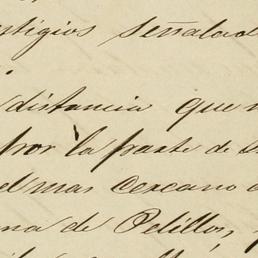 stigios señalad
distancia que
por la parte de
el mas cercano
na de Pelillos,